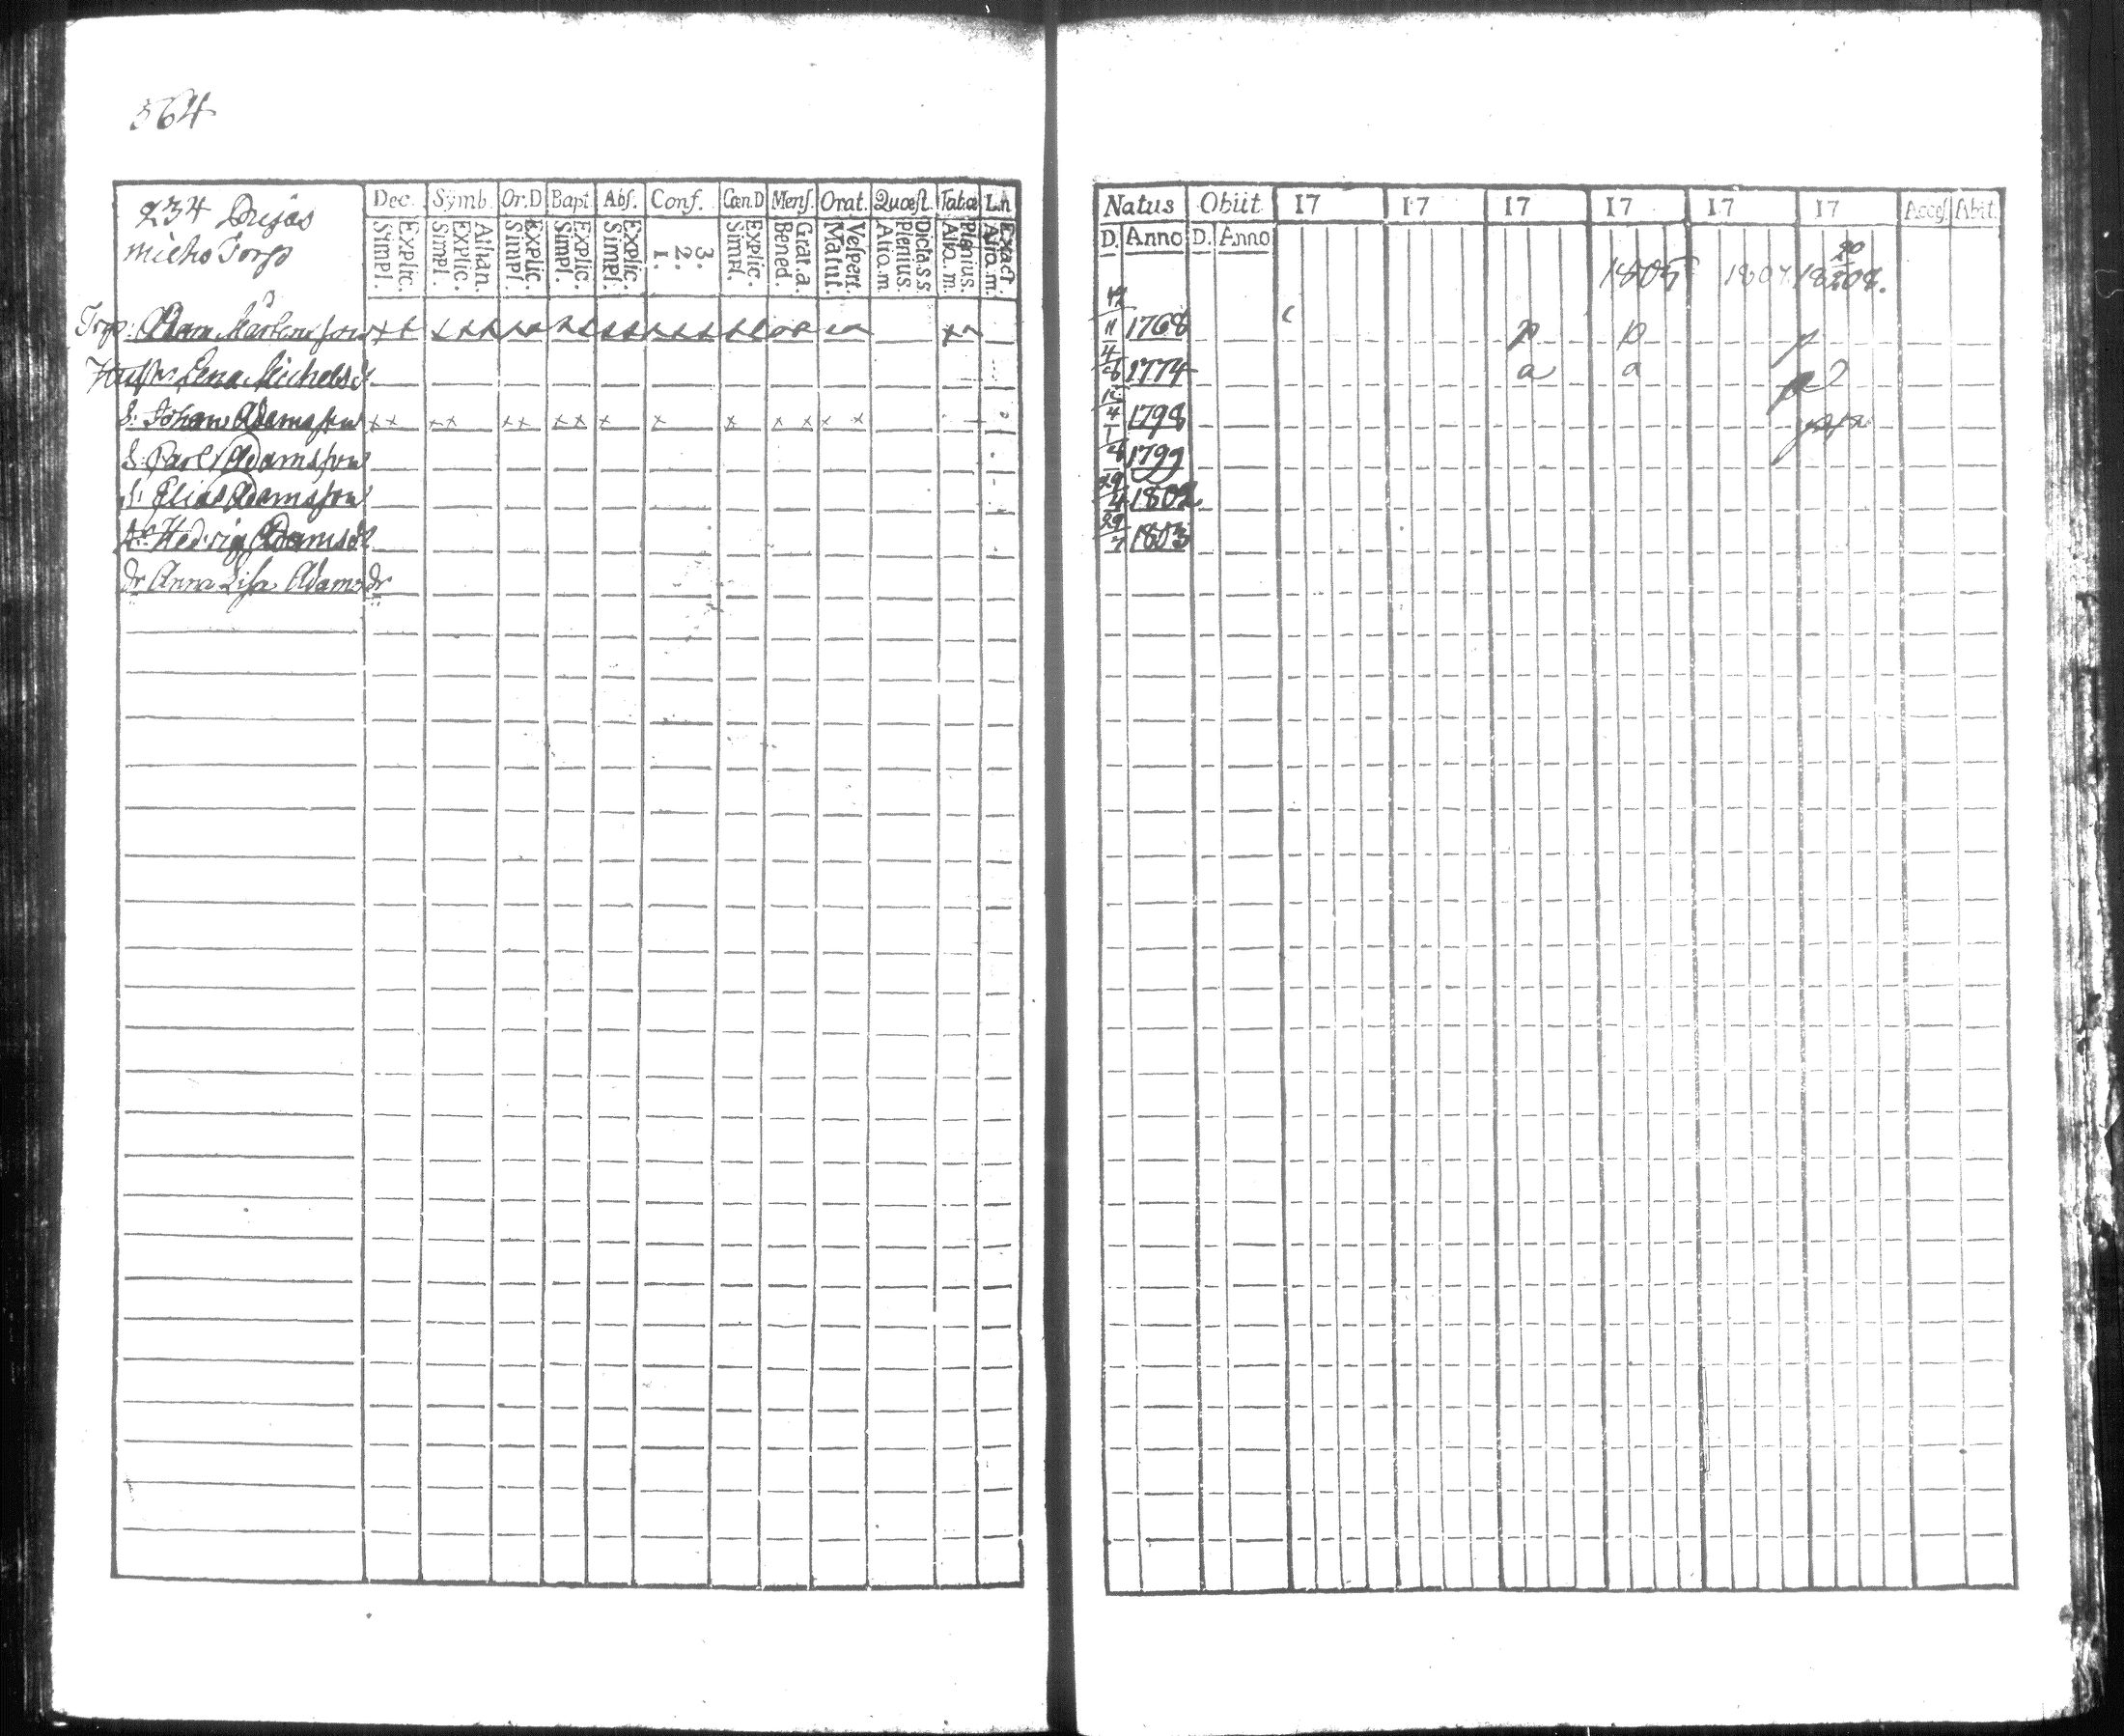 564
234 Dujas
micko Torp
Dec. Symb. Or.D Bapt. Abſ. Conf. Cœn.D Menſ. Orat. Quæſt. Tab.œ L.n
Explic. Simpl. Athan. Explic. Simpl. Explic. Simpl. Explic. Simpl. Explic. Simpl. 3. 2. 1. Explic. Simpl. Grat.a. Bened. Veſpert. Matut. Dicta.s.s. Plenius. Aliq.m Plenius. Aliq.m. Exact. Aliq.m.
Torp. Adam Mårtensson
Hustr. Lena Michelsd
S. Johan Adamsson x x x x x x x x x x x x x x x
S. Carl Adamsson
S. Elias Adamsson
Hedvig Adamsd
dr Anna Lisa Adamsdr
Natus Obiit 17 17 17 17 17 17 Acceſ. Abit.
D. Anno D. Anno
1805 1807 1808.
11 1768 p p p
4/6 1774 a a
4 1798
1/8 1799
29/4 1802
29/7 1803